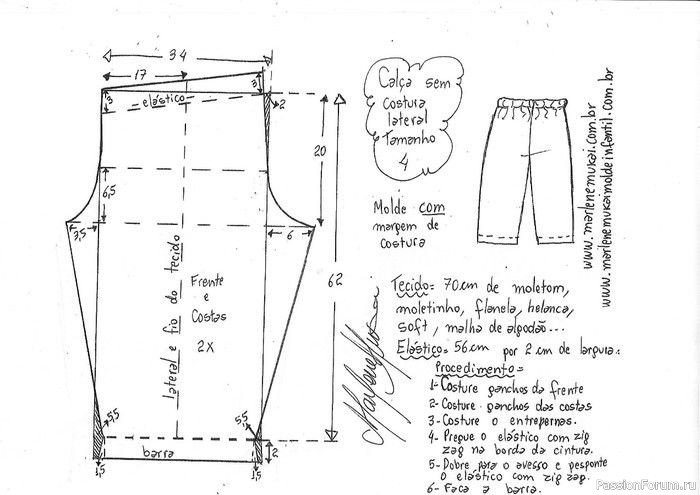 34
17
3
3
elástico
2
20
6,5
3,5
6
62
lateral e fio do tecido
Frente
e
Costas
2X
5,5
5,5
barra
2
1,5
1,5
Calça sem
costura
lateral
Tamanho
4
Molde com
margem de
costura
www.marlenemukai.com.br
www.marlenemukaimoldeinfantil.com.br
Marlene Mukai
Tecido= 70cm de moletom,
moletinho, flanela, helanca,
soft, malha de algodão...
Elástico= 56cm por 2cm de largura.
Procedimento=
1- Costure ganchos da frente
2- Costure ganchos das costas
3- Costure o entrepernas.
4- Pregue o elástico com zig
zag na borda da cintura.
5- Dobre para o avesso e pesponte
o elástico com zig zag.
6- Faça a barra.
PassionForum.ru